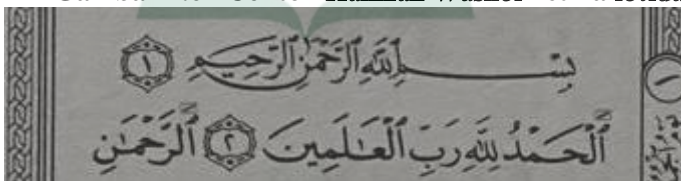 بِسْمِ ٱللَّهِ ٱلرَّحْمَٰنِ ٱلرَّحِيمِ ١
ٱلْحَمْدُ لِلَّهِ رَبِّ ٱلْعَٰلَمِينَ ٢ ٱلرَّحْمَٰنِ